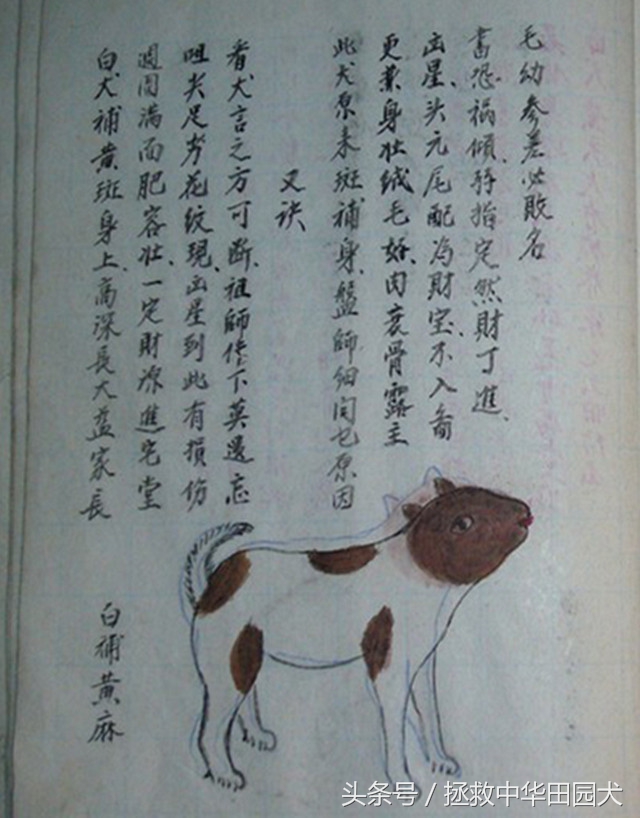 毛幼参差必敗名
恐禍傾指定然財丁進、
凶星、头元尾配為財宝、不入畜
更兼身壮绒毛好、肉衰骨露主
此犬原来斑補身、盤師细原因
又诀
看犬言之方可断、祖師传下莫遗忘
咀尖足花纹現、凶星到此有損伤
週囘满面肥容壮、一定財源進宅堂
白犬補黄斑身上、高深長大益家長
白補黄麻
头条号／拯救中华田园犬